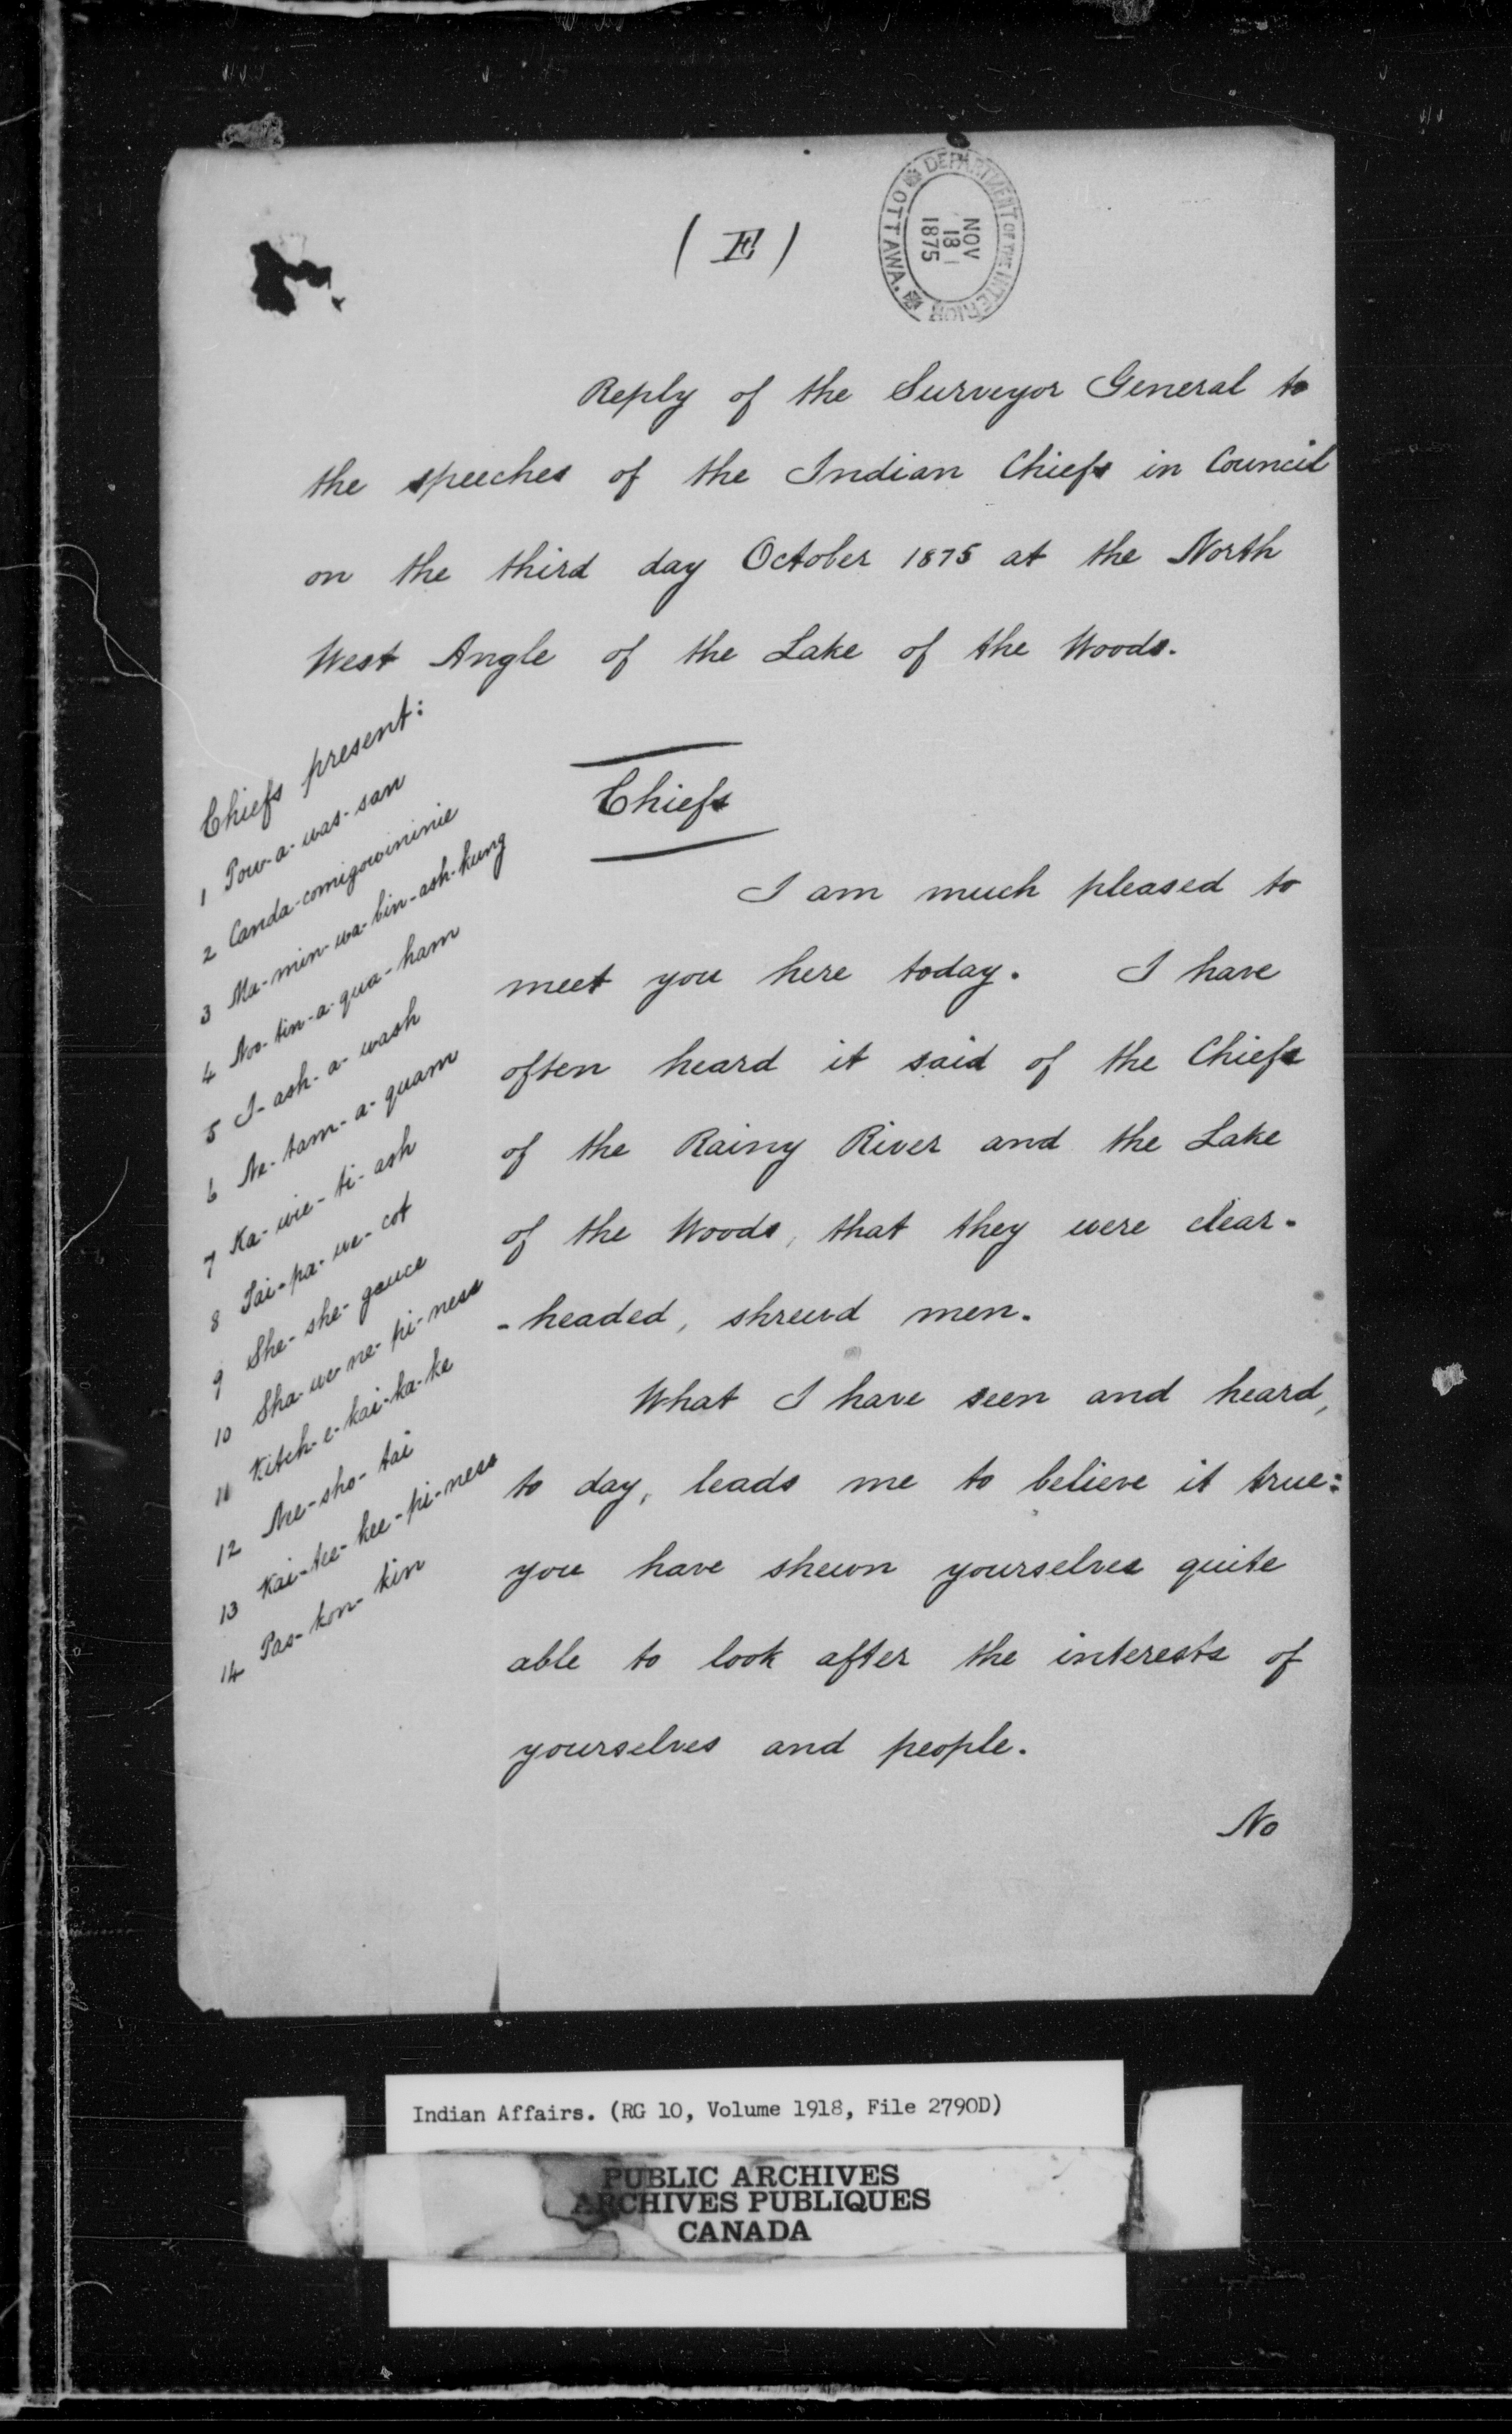 ( E )
DEPARTMENT OF THE INTERIOR
OTTAWA.
NOV
18
1875
Reply of the Surveyor General to
the speeches of the Indian Chiefs in Council
on the third day October 1875 at the North
West Angle of the Lake of the Woods.
Chiefs present:
1 Pow-a-was-san
2 Canda-comigowininie
3 Ma-min-wa-bin-ash-kung
4 Noo-tin-a-qua-ham
5 I-ash-a-wash
6 Ne-tam-a-quam
7 Ka-wie-ti-ash
8 Tai-pa-we-cot
9 She-she-gence
10 Sha-we-ne-pi-ness
11 Kitch-e-kai-ka-ke
12 Nee-sho-tai
13 Kai-tee-kee-pi-ness
14 Pas-kon-kin
Chiefs
I am much pleased to
meet you here today. I have
often heard it said of the Chiefs
of the Rainy River and the Lake
of the Woods, that they were clear-
-headed, shrewd men.
What I have seen and heard,
to day, leads me to believe it true:
you have shewn yourselves quite
able to look after the interests of
yourselves and people.
No
Indian Affairs. (RG 10, Volume 1918, File 2790D)
PUBLIC ARCHIVES
ARCHIVES PUBLIQUES
CANADA